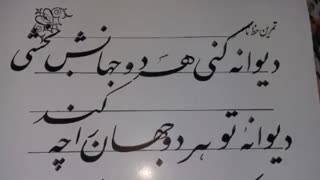 تمرین خط ما
دیوانه کنی هر دو جهانش بخشی
دیوانهٔ تو هر دو جهان را چه کند